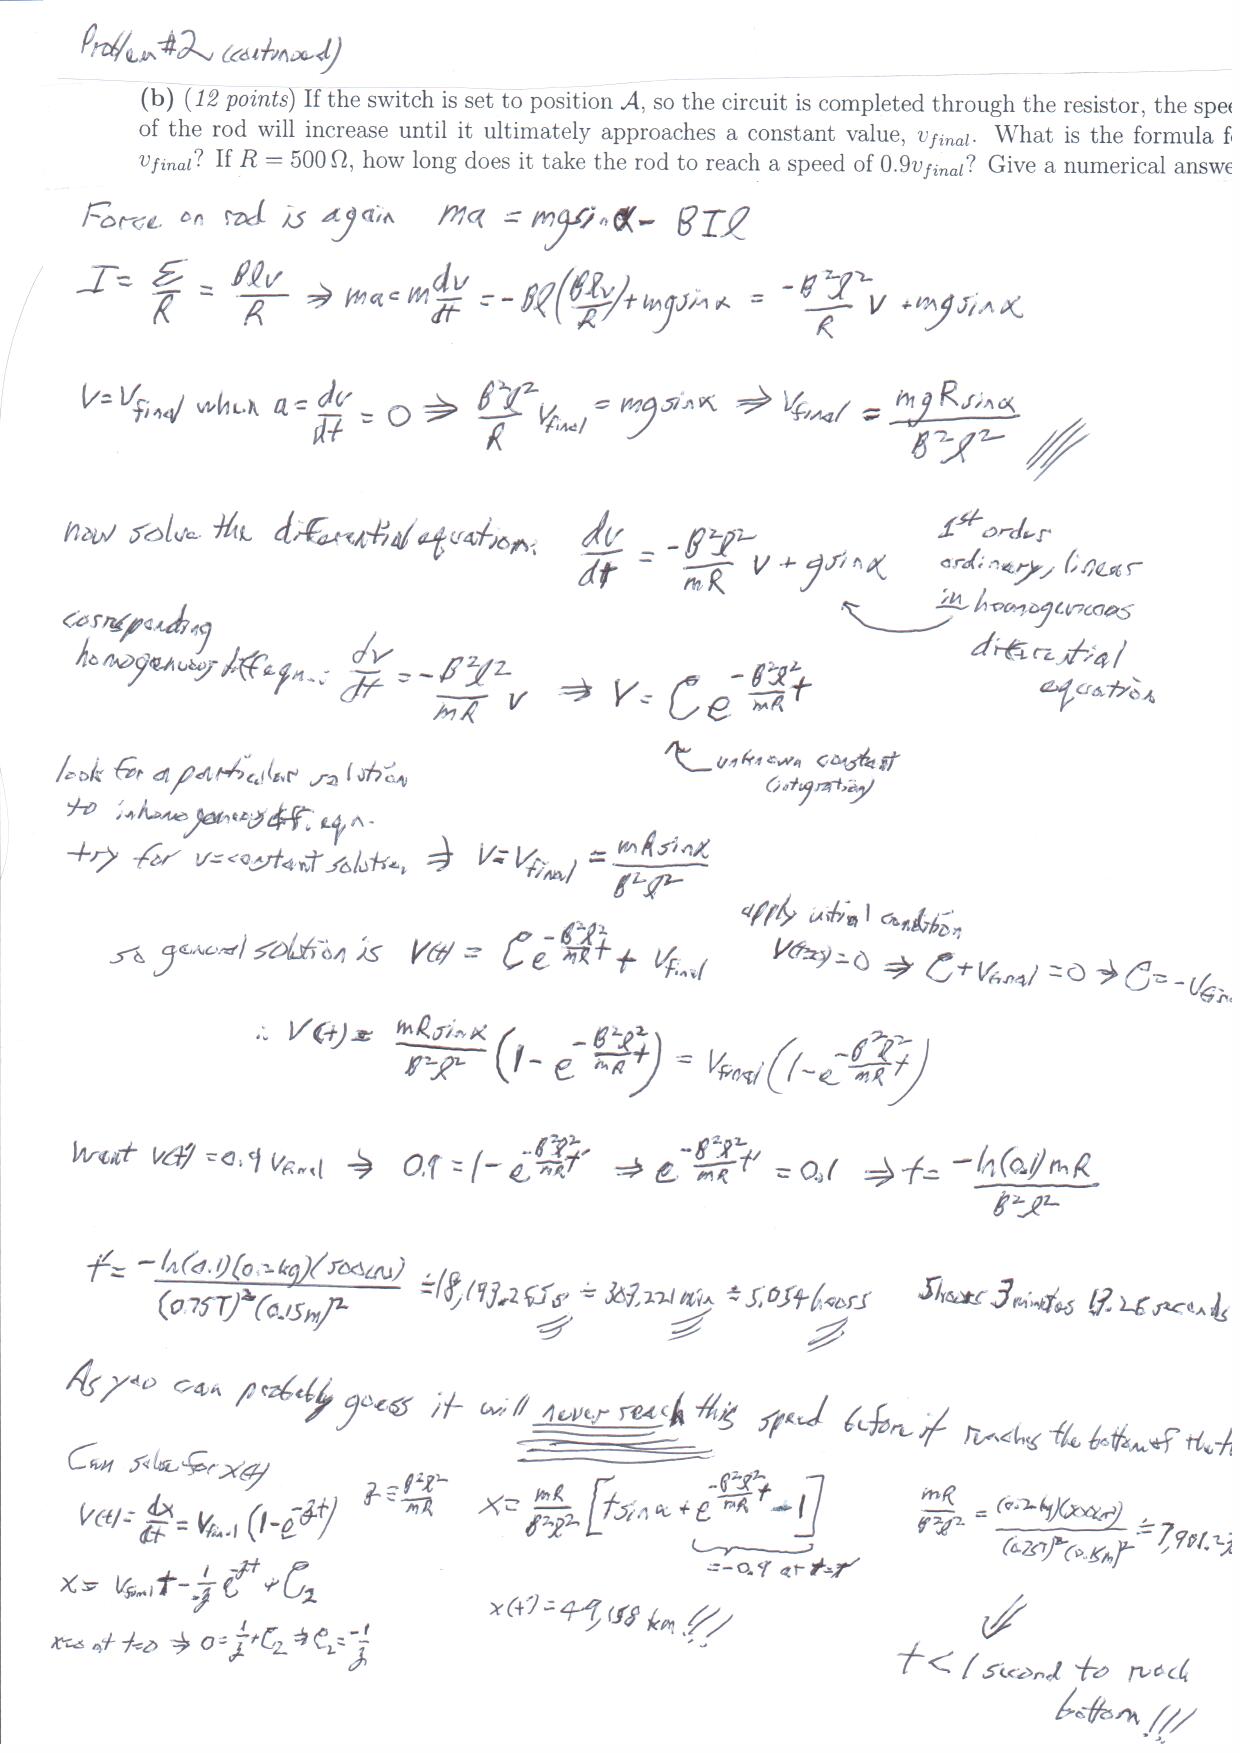 Problem #2 (continued)
(b) (12 points) If the switch is set to position A, so the circuit is completed through the resistor, the spee
of the rod will increase until it ultimately approaches a constant value, v_final. What is the formula f
v_final? If R = 500 Ω, how long does it take the rod to reach a speed of 0.9v_final? Give a numerical answe
Force on rod is again ma = mg sin α - BIl
I = ℰ/R = Blv/R ⇒ ma = m dv/dt = -Bl(Blv/R) + mg sin α = -B²l²/R v + mg sin α
V = V_final when a = dv/dt = 0 ⇒ B²l²/R V_final = mg sin α ⇒ V_final = mgR sin α / B²l²
now solve the differential equation: dv/dt = -B²l²/mR v + g sin α
1st order
ordinary, linear
inhomogeneous
differential
equation
corresponding
homogeneous diff eqn.: dv/dt = -B²l²/mR v ⇒ V = C e^(-B²l²/mR t)
unknown constant
(integration)
look for a particular solution
to inhomogeneous diff. eqn.
try for v=constant solution ⇒ V = V_final = mR sin α / B²l²
apply initial condition
so general solution is V(t) = C e^(-B²l²/mR t) + V_final
V(t=0) = 0 ⇒ C + V_final = 0 ⇒ C = -V_fin
∴ V(t) = mR sin α / B²l² (1 - e^(-B²l²/mR t)) = V_final (1 - e^(-B²l²/mR t))
Want V(t') = 0.9 V_final ⇒ 0.9 = 1 - e^(-B²l²/mR t') ⇒ e^(-B²l²/mR t') = 0.1 ⇒ t = -ln(0.1) mR / B²l²
t' = -ln(0.1)(0.2 kg)(500 Ω) / (0.75T)²(0.15m)² ≐ 18,193.255 s ≐ 303.221 min ≐ 5.054 hours 5 hours 3 minutes 13.26 seconds
As you can probably guess it will never reach this speed before it reaches the bottom of the t
Can solve for x(t)
V(t) = dx/dt = V_final (1 - e^(-zt)) z ≡ B²l²/mR
x = V_final t - 1/-z e^(-zt) + C₂
x=0 at t=0 ⇒ 0 = 1/z + C₂ ⇒ C₂ = -1/z
x = mR/B²l² [t sin α + e^(-B²l²/mR t) - 1]
= -0.9 at t=t'
x(t') = 49,158 km!!!
mR/B²l² = (0.2 kg)(500Ω) / (0.75T)²(0.15m)² ≐ 7,901.2
t < 1 second to reach
bottom!!!